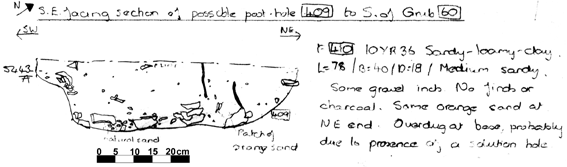 N S.E. facing section of possible post-hole 409 to S. of Grub 60
SW NE
5243
409
natural sand
Patch of orangy sand
0 5 10 15 20cm
F 410 10YR36 Sandy-loamy-clay.
L=78/B=40/D=18/ Medium sandy.
Some gravel incls. No finds or
charcoal. Some orange sand at
NE end. Overdug at base, probably
due to presence of a solution hole